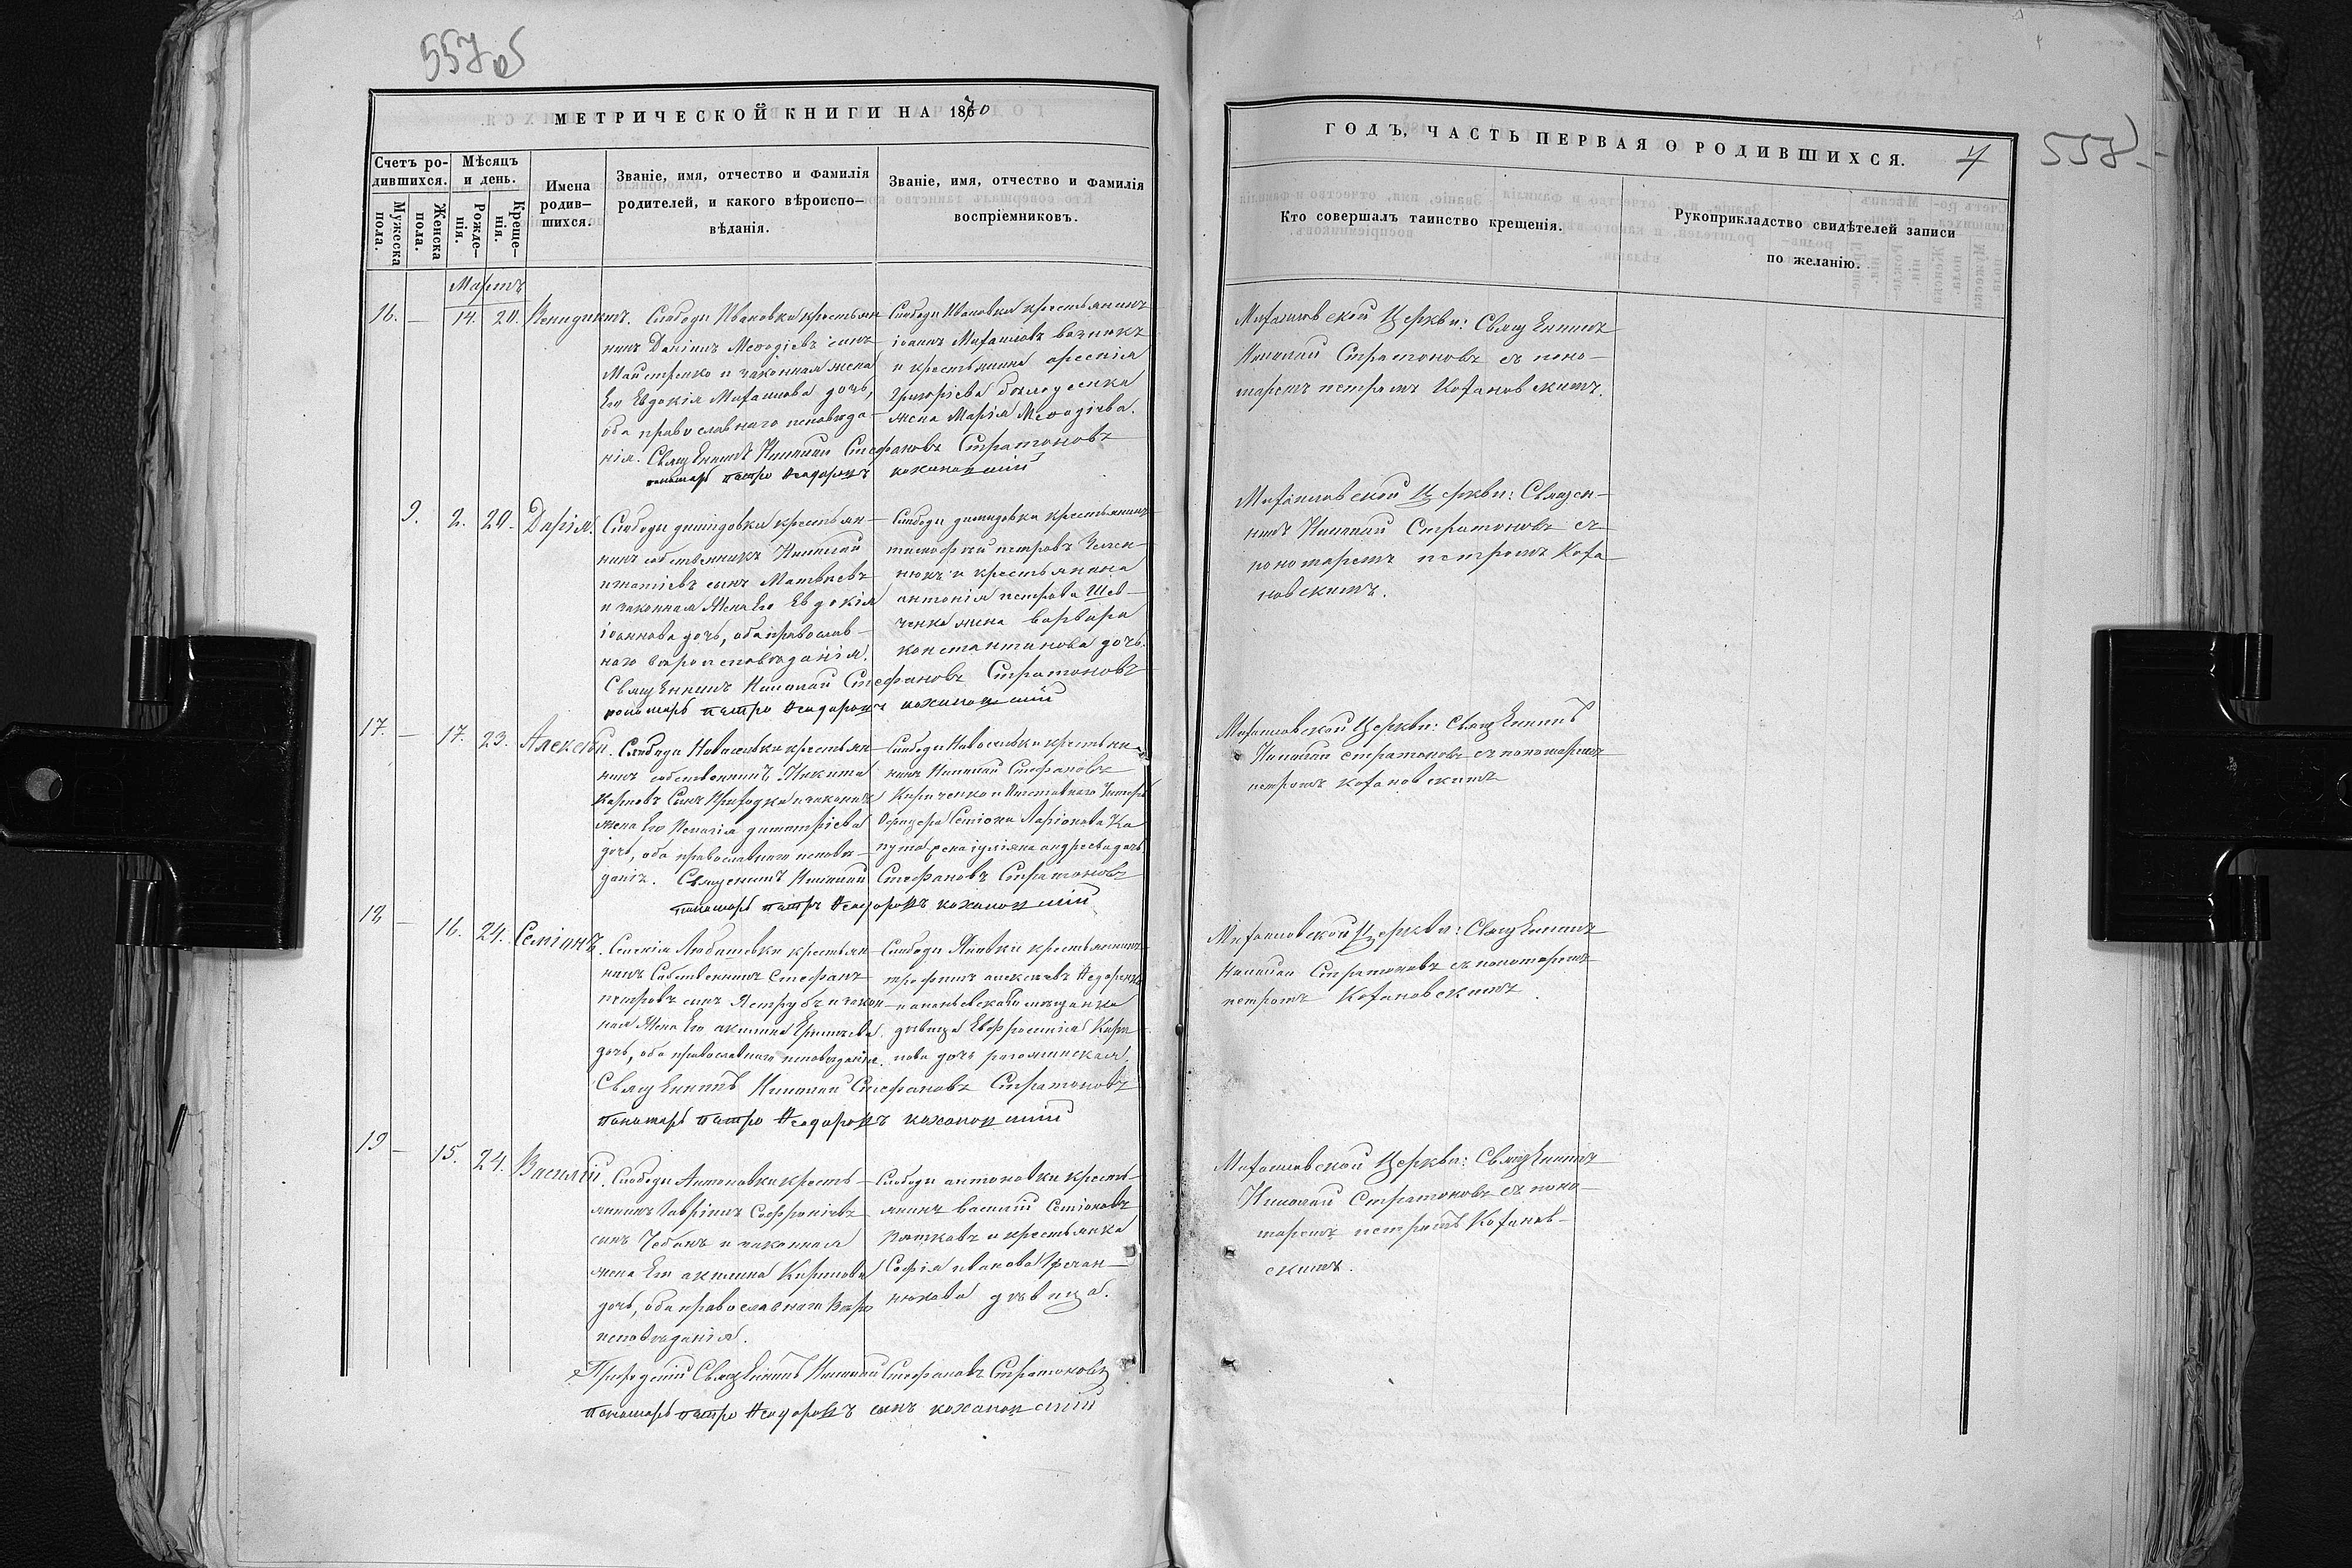 557об
МЕТРИЧЕСКОЙ КНИГИ НА 1870
Счетъ родившихся.
Мѣсяцъ и день.
Имена родившихся.
Званіе, имя, отчество и фамилія родителей, и какого вѣроисповѣданія.
Званіе, имя, отчество и фамилія воспріемниковъ.
Мужеска пола.
Женска пола.
Рожденія.
Крещенія.
Мартъ
16. — 14. 20. Венидиктъ.
Слободи Ивановки крестьян-
нинъ Даніилъ Меѳодіевъ сынъ
Майстренко и законная жена
Его Евдокія Михаилова дочь,
оба православнаго исповѣда-
нія. Священникъ Николай Стефановъ Стратоновъ
пономарь Петро Ѳеодоровъ кохановскій
Слободи Ивановки крестьянинъ
іоаннъ Михаиловъ
и крестьянина арсенія
Григоріева
жена Марія Меѳодіева.
9. 2. 20. Дарія.
Слободи димидовки крестьян-
нинъ собственникъ Николай
игнатіевъ сынъ Матвѣевъ
и законная Жена Его Евдокія
іоаннова дочь, оба православ-
наго вѣроисповѣданія.
Священникъ Николай Стефановъ Стратоновъ
пономарь петро Ѳеодоровъ кохановскій
Слободи димидовки крестьянинъ
тимофѣй петровъ
нюкъ и крестьянина
антонія петрова Шев-
ченка жена варвара
константинова дочь.
17. — 17. 23. Алексѣй.
Слободи Новоселовки крестьян-
нинъ собственникъ Никита
Карповъ Сынъ Приходко и законная
жена Его Пелагія димитріева
дочь, оба православнаго исповѣ-
данія. Священникъ Николай Стефановъ Стратоновъ
пономарь петръ Ѳеодоровъ кохановскій
Слободи Новоселовки крестьян-
нинъ Николай Стефановъ
Кириченко и Отставнаго Унтеръ
Офицера Семіона Ларіонова Ка
пуста жена іуліяна андреева дочь
18 — 16. 24. Семіонъ.
Селенія Любашевки крестьян-
нинъ Собственникъ Стефанъ
петровъ сынъ Яструбъ и закон-
ная Жена Его акилина
дочь, оба православнаго исповѣданія.
Священникъ Николай Стефановъ Стратоновъ
пономарь петро Ѳеодоровъ кохановскій
Слободи Яновки крестьянинъ
трофимъ алексѣевъ Ѳедоренко
и ананьевская мѣщанка
дѣвица Евфросинія Карп
ова дочь
19 — 15. 24. Василій.
Слободи Антоновки кресть-
янинъ Гавріилъ Софроніевъ
сынъ Чебанъ и законная
жена Его акилина Карпова
дочь, оба православнаго Вѣро
исповѣданія.
Слободи антоновки кресть-
янинъ василій Семіоновъ
и крестьянка
Софія иванова Гречан-
нюкова дѣвица.
Приходскій Священникъ Николай Стефановъ Стратоновъ
пономарь петро Ѳеодоровъ сынъ кохановскій
ГОДЪ, ЧАСТЬ ПЕРВАЯ О РОДИВШИХСЯ.
7
558
Кто совершалъ таинство крещенія.
Рукоприкладство свидѣтелей записи по желанію.
Михаиловской Церкви: Священникъ
Николай Стратоновъ съ поно-
маремъ петромъ Кохановскимъ.
Михаиловской Церкви: Священ-
никъ Николай Стратоновъ съ
пономаремъ петромъ Коха
новскимъ.
Михаиловской Церкви: Священникъ
Николай стратоновъ съ пономаремъ
петромъ кохановскимъ
Михаиловской Церкви: Священникъ
Николай Стратоновъ съ пономаремъ
петромъ Кохановскимъ.
Михаиловской Церкви: Священникъ
Николай Стратоновъ съ поно-
маремъ петромъ Коханов-
скимъ.